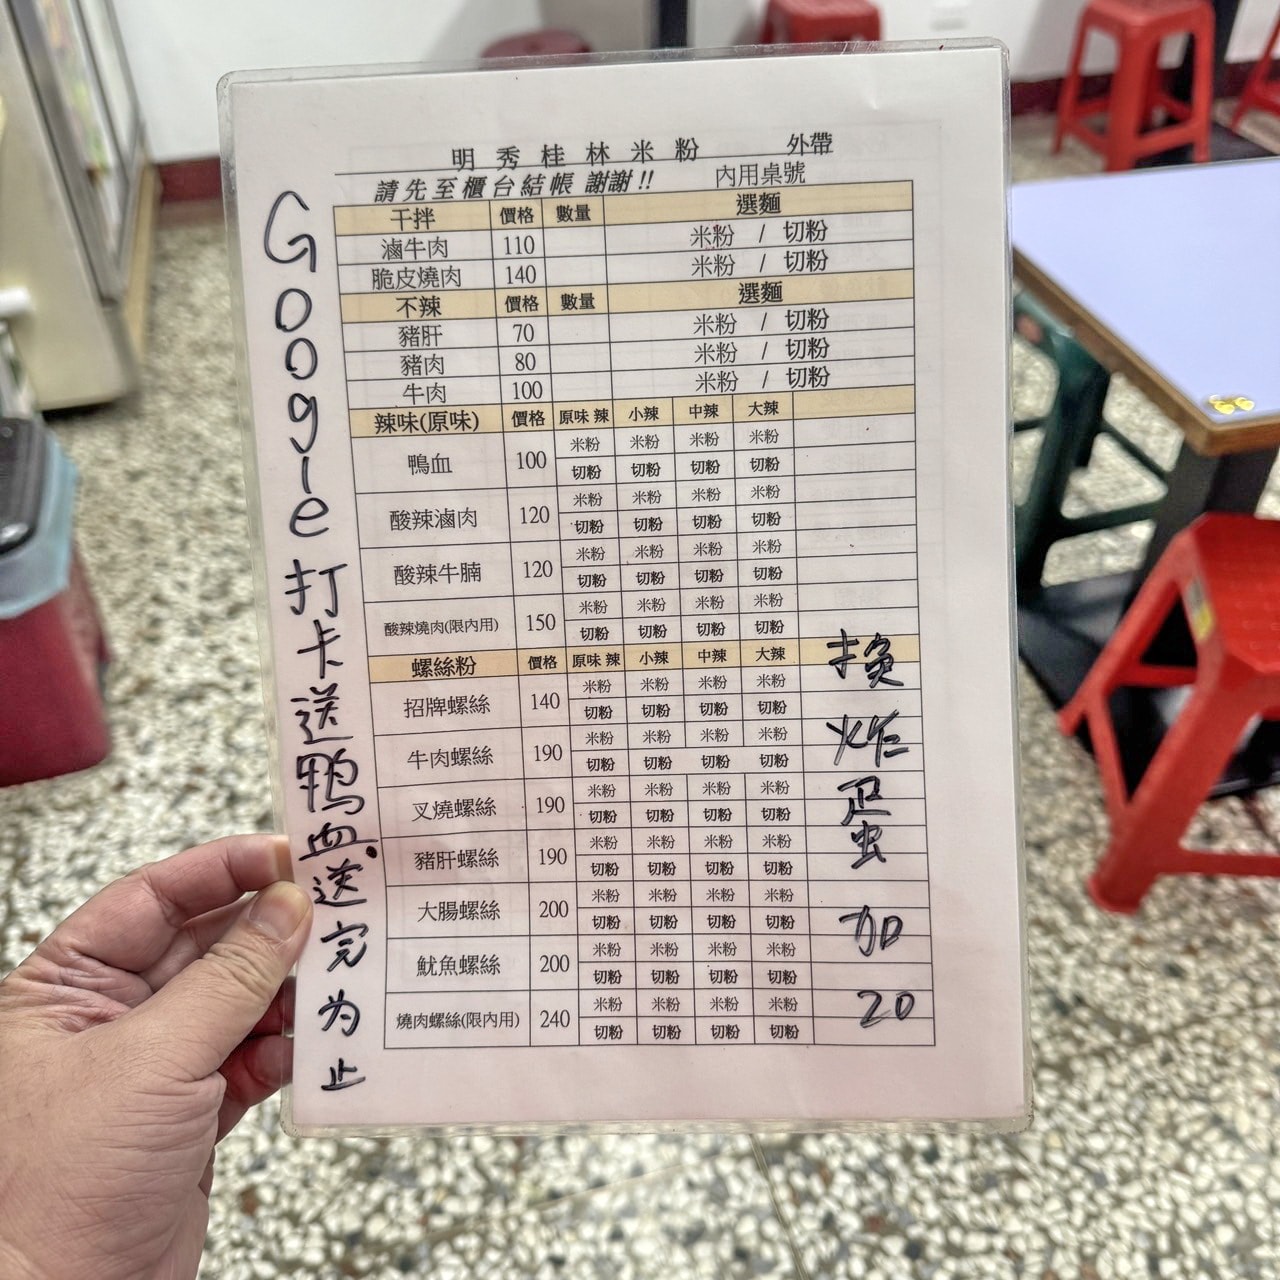 明秀桂林米粉 外帶
請先至櫃台結帳 謝謝!! 內用桌號
干拌 價格 數量 選麵
滷牛肉 110 米粉 / 切粉
脆皮燒肉 140 米粉 / 切粉
不辣 價格 數量 選麵
豬肝 70 米粉 / 切粉
豬肉 80 米粉 / 切粉
牛肉 100 米粉 / 切粉
辣味(原味) 價格 原味 辣 小辣 中辣 大辣
鴨血 100 米粉 米粉 米粉 米粉
切粉 切粉 切粉 切粉
酸辣滷肉 120 米粉 米粉 米粉 米粉
切粉 切粉 切粉 切粉
酸辣牛腩 120 米粉 米粉 米粉 米粉
切粉 切粉 切粉 切粉
酸辣燒肉(限內用) 150 米粉 米粉 米粉 米粉
切粉 切粉 切粉 切粉
螺絲粉 價格 原味 辣 小辣 中辣 大辣
招牌螺絲 140 米粉 米粉 米粉 米粉
切粉 切粉 切粉 切粉
牛肉螺絲 190 米粉 米粉 米粉 米粉
切粉 切粉 切粉 切粉
叉燒螺絲 190 米粉 米粉 米粉 米粉
切粉 切粉 切粉 切粉
豬肝螺絲 190 米粉 米粉 米粉 米粉
切粉 切粉 切粉 切粉
大腸螺絲 200 米粉 米粉 米粉 米粉
切粉 切粉 切粉 切粉
魷魚螺絲 200 米粉 米粉 米粉 米粉
切粉 切粉 切粉 切粉
燒肉螺絲(限內用) 240 米粉 米粉 米粉 米粉
切粉 切粉 切粉 切粉
Google打卡送鴨血送完为止
换炸蛋加20